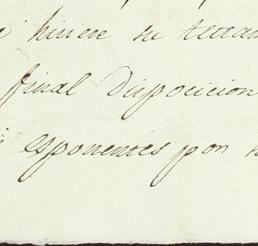 hiciere su
final dispocicion
esponentes por